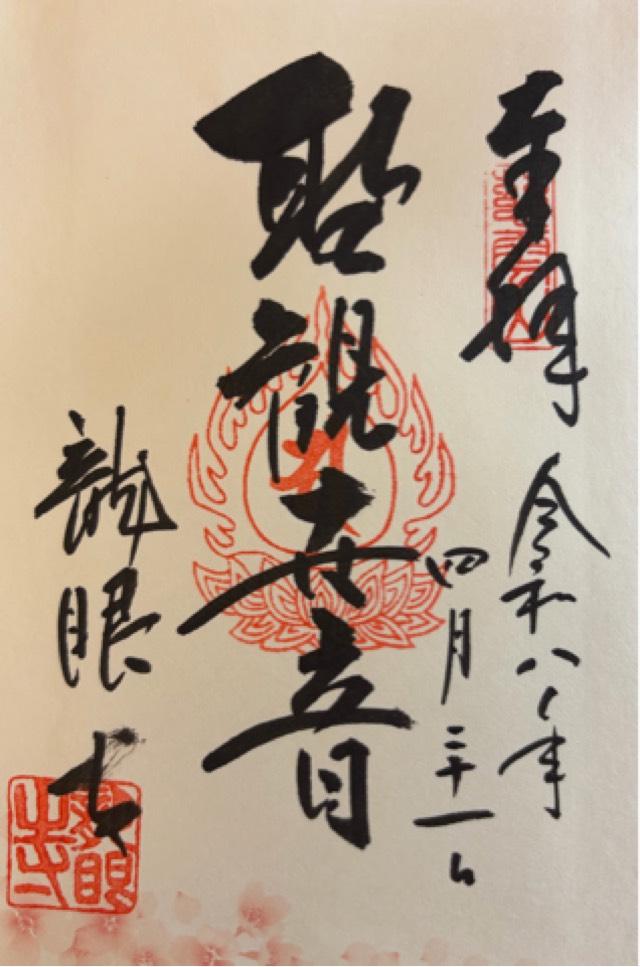 奉拝
令和八年
四月二十一日
聖観世音
龍眼寺